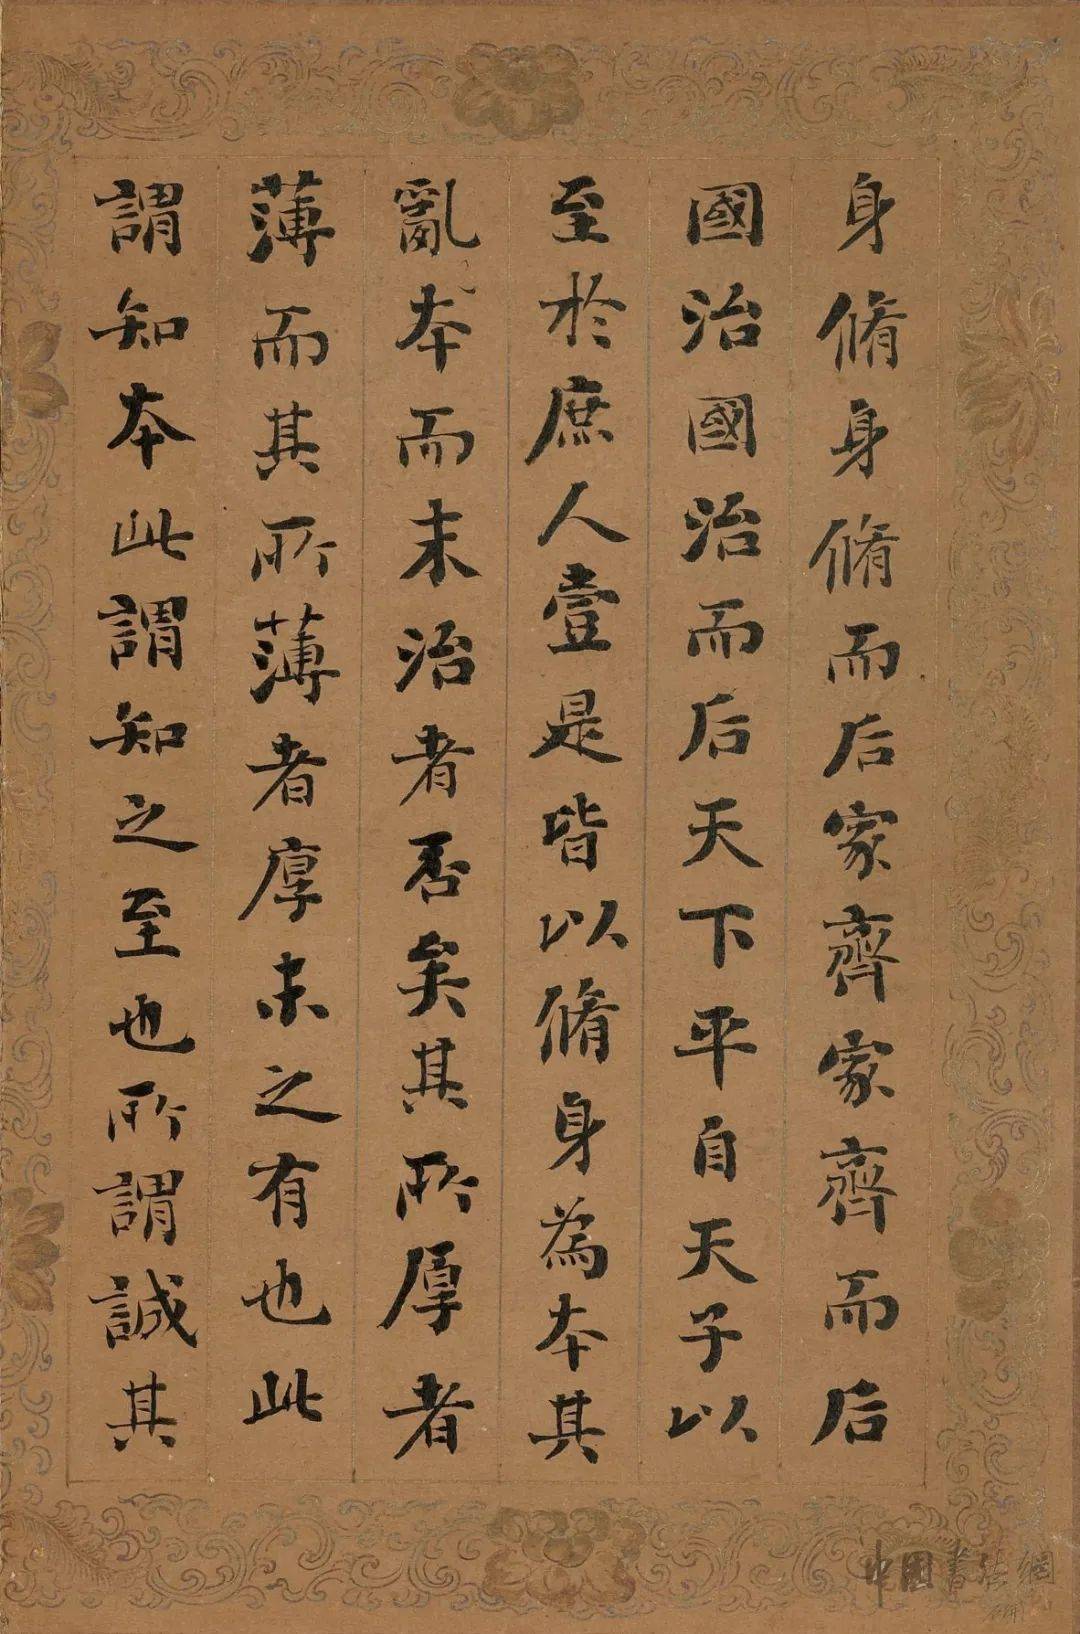 身脩身脩而后家齊家齊而后
國治國治而后天下平自天子以
至於庶人壹是皆以脩身為本其
亂本而末治者否矣其所厚者
薄而其所薄者厚未之有也此
謂知本此謂知之至也所謂誠其
中國書法網